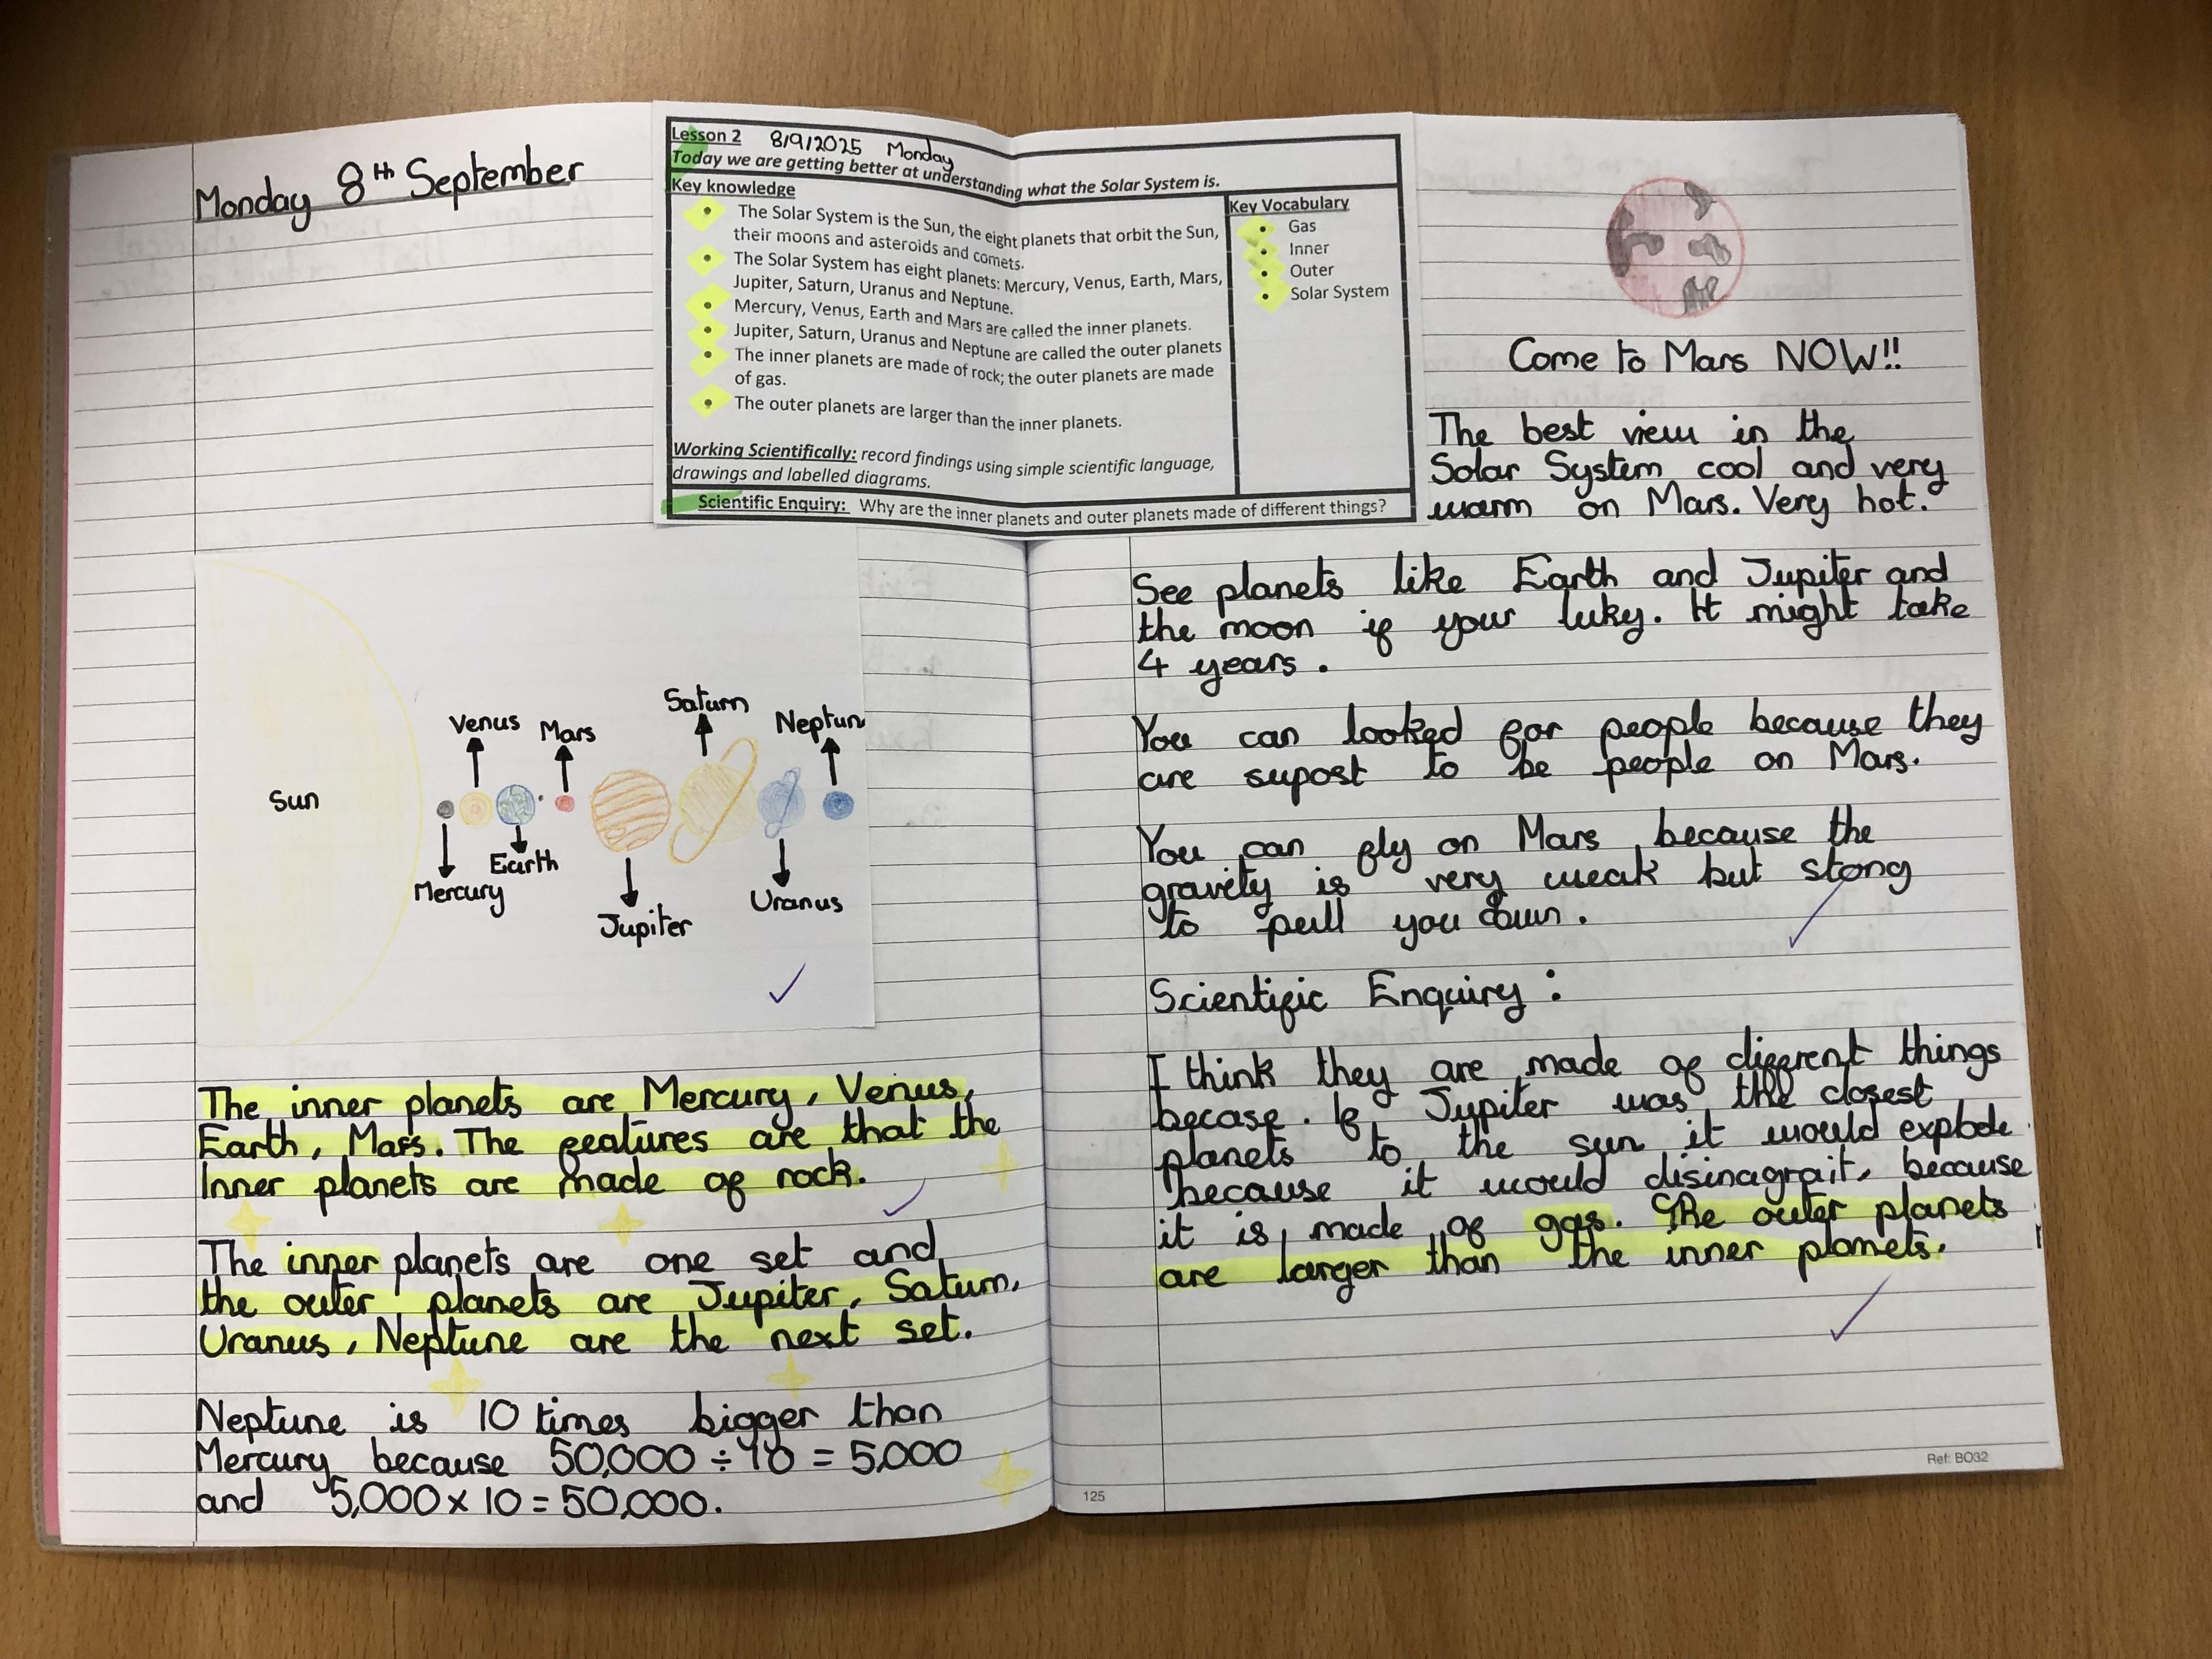 Monday 8th September
Lesson 2 8/9/2025 Monday
Today we are getting better at understanding what the Solar System is.
Key knowledge
The Solar System is the Sun, the eight planets that orbit the Sun,
their moons and asteroids and comets.
The Solar System has eight planets: Mercury, Venus, Earth, Mars,
Jupiter, Saturn, Uranus and Neptune.
Mercury, Venus, Earth and Mars are called the inner planets.
Jupiter, Saturn, Uranus and Neptune are called the outer planets
The inner planets are made of rock; the outer planets are made
of gas.
The outer planets are larger than the inner planets.
Working Scientifically: record findings using simple scientific language,
drawings and labelled diagrams.
Key Vocabulary
Gas
Inner
Outer
Solar System
Scientific Enquiry: Why are the inner planets and outer planets made of different things?
Sun
Venus
Mars
Saturn
Neptun
Mercury
Earth
Jupiter
Uranus
The inner planets are Mercury, Venus,
Earth, Mars. The features are that the
Inner planets are made of rock.
The inner planets are one set and
the outer planets are Jupiter, Saturn,
Uranus, Neptune are the next set.
Neptune is 10 times bigger than
Mercury because 50,000 ÷ 10 = 5,000
and 5,000 x 10 = 50,000.
Come to Mars NOW!!
The best view in the
Solar System cool and very
warm on Mars. Very hot.
See planets like Earth and Jupiter and
the moon if your luky. It might take
4 years.
You can looked for people because they
are supost to be people on Mars.
You can fly on Mars because the
gravity is very weak but stong
to pull you down.
Scientific Enquiry:
I think they are made of different things
becase. If Jupiter was the closest
planets to the sun it would explode
because it would disinagrait, because
it is made of gas. The outer planets
are larger than the inner planets.
125
Ref: BO32